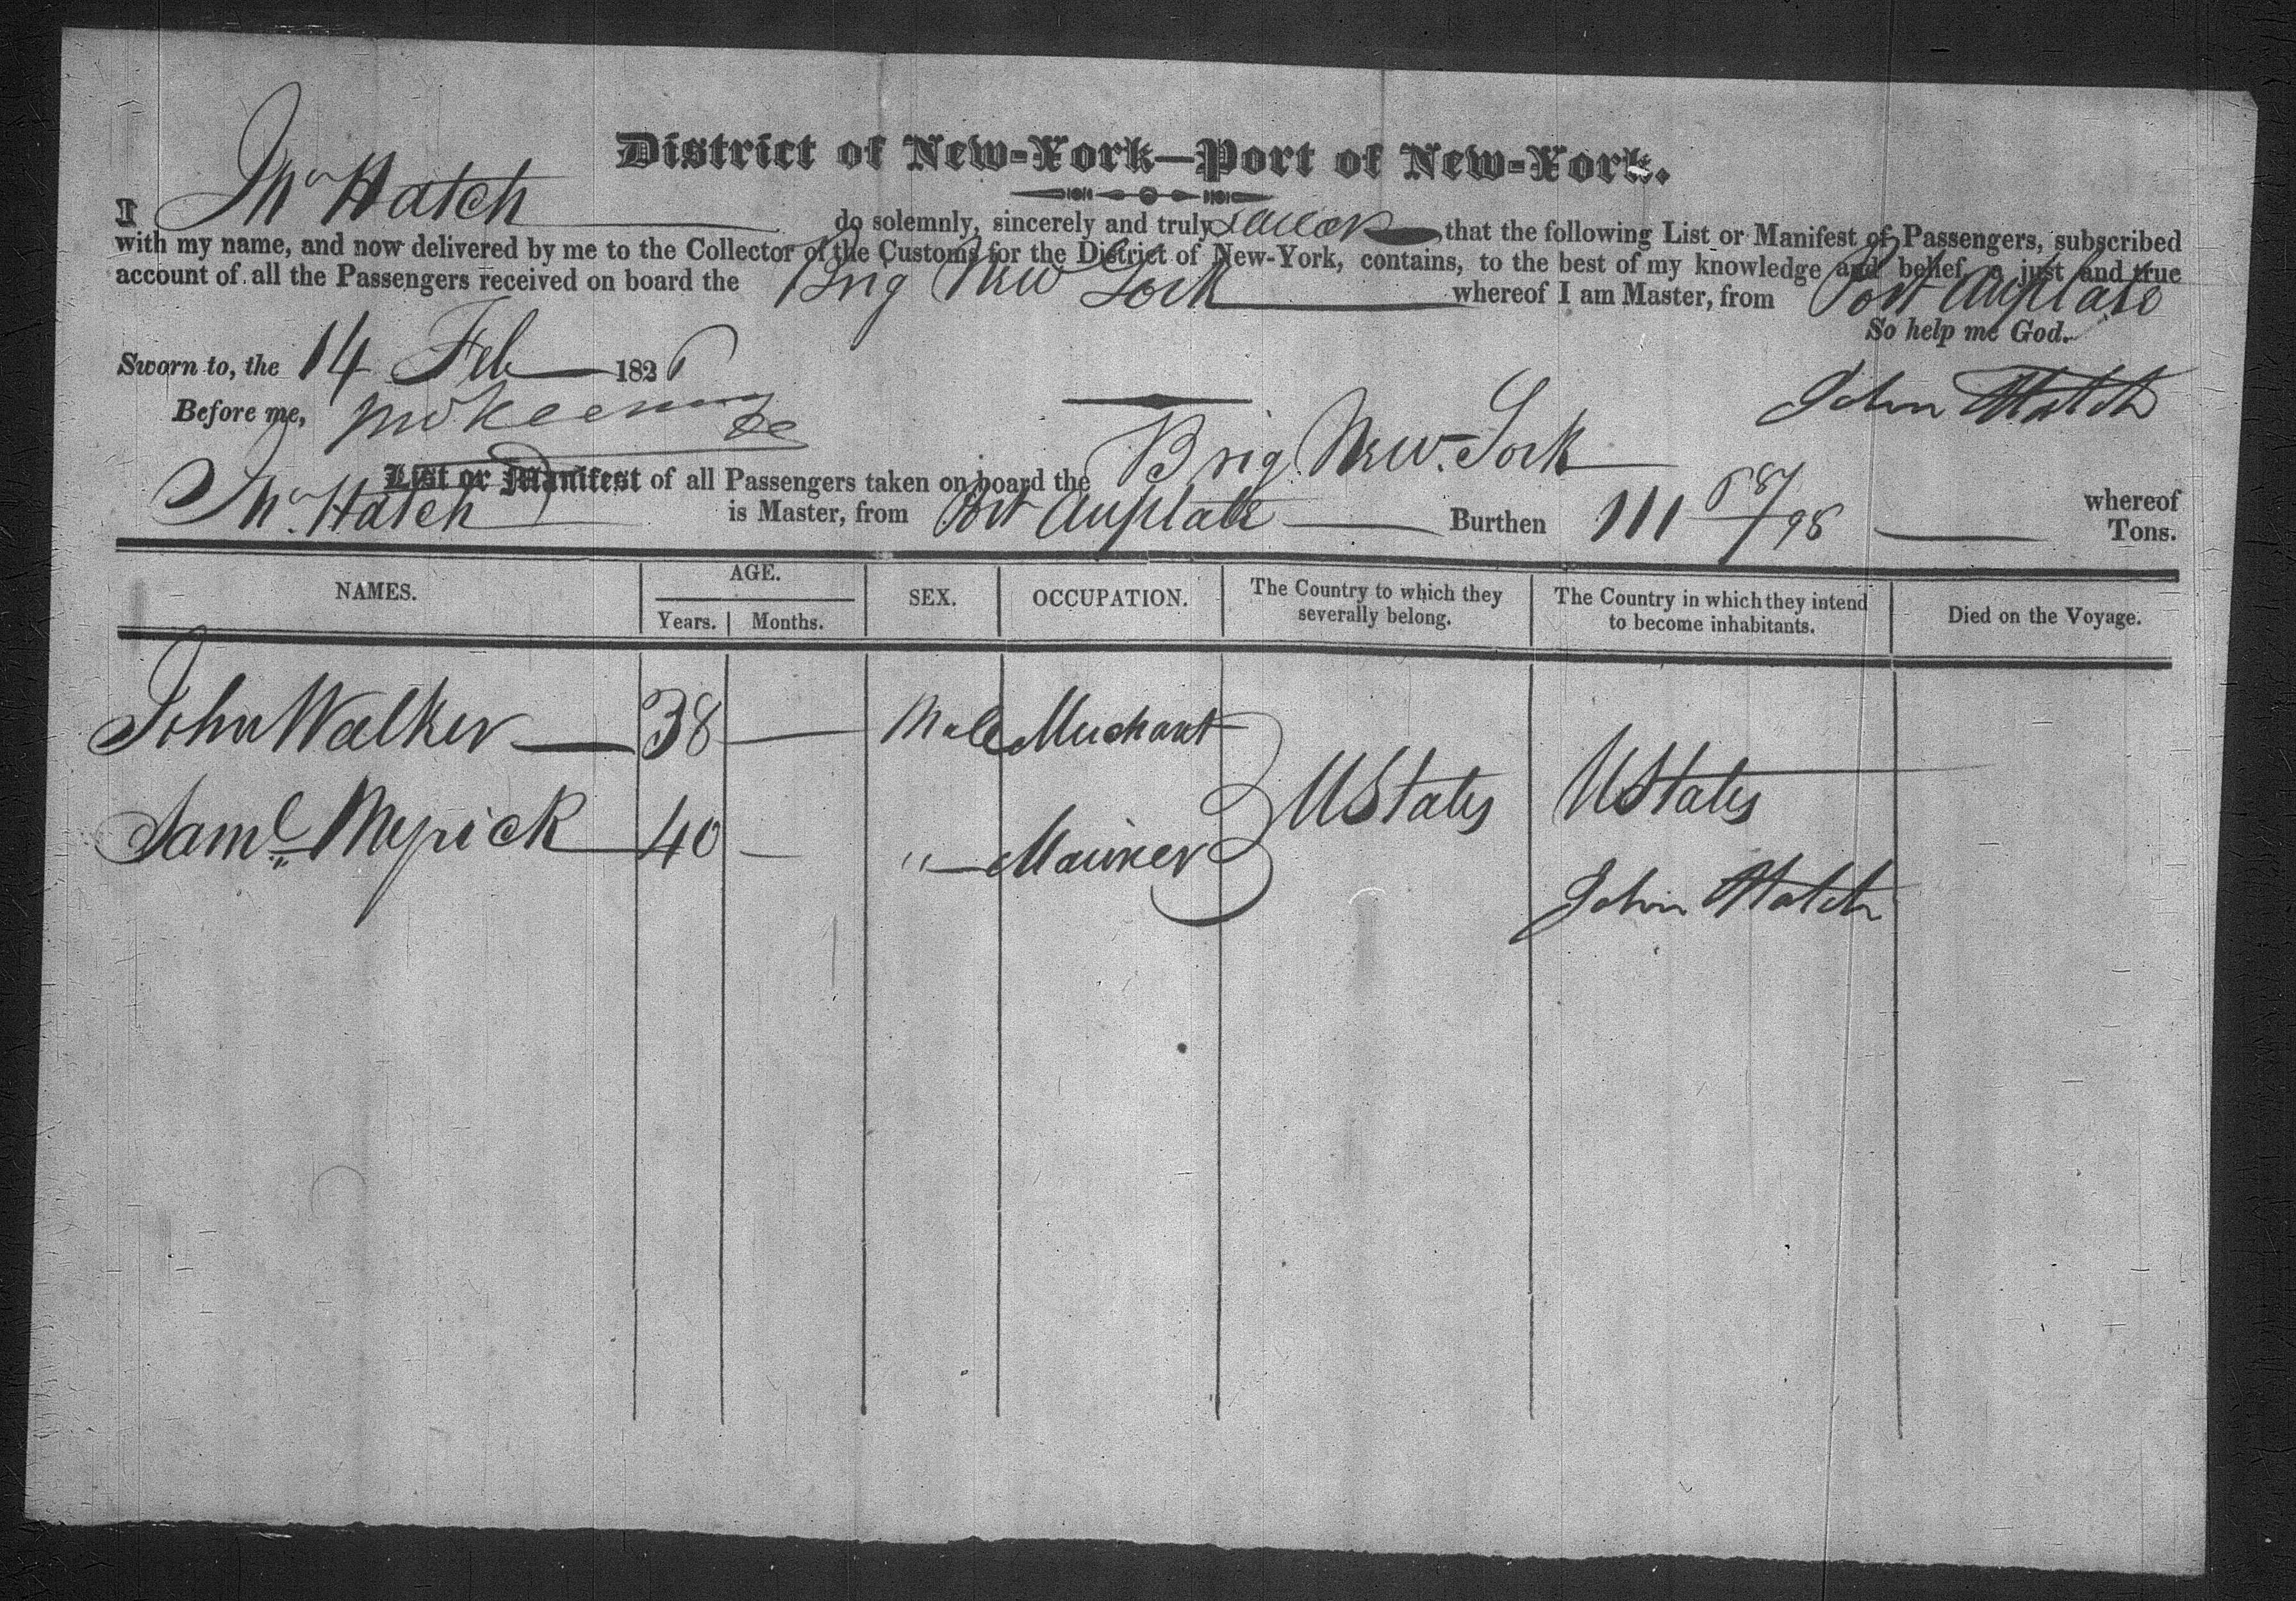 District of New-York—Port of New-York.
I Jno Hatch do solemnly, sincerely and truly swear that the following List or Manifest of Passengers, subscribed
with my name, and now delivered by me to the Collector of the Customs for the District of New-York, contains, to the best of my knowledge and belief, a just and true
account of all the Passengers received on board the Brig New York whereof I am Master, from Port au plate
So help me God.
Sworn to, the 14 Feb 1826
John Hatch
Before me,
List or Manifest of all Passengers taken on board the Brig New-York whereof
Jno Hatch is Master, from Port au plate Burthen 111 87/95 Tons.
NAMES. AGE. SEX. OCCUPATION. The Country to which they severally belong. The Country in which they intend to become inhabitants. Died on the Voyage.
Years. Months.
John Walker 38 — Male Merchant
UStates UStates
Saml 40 — " Mariner
John Hatch